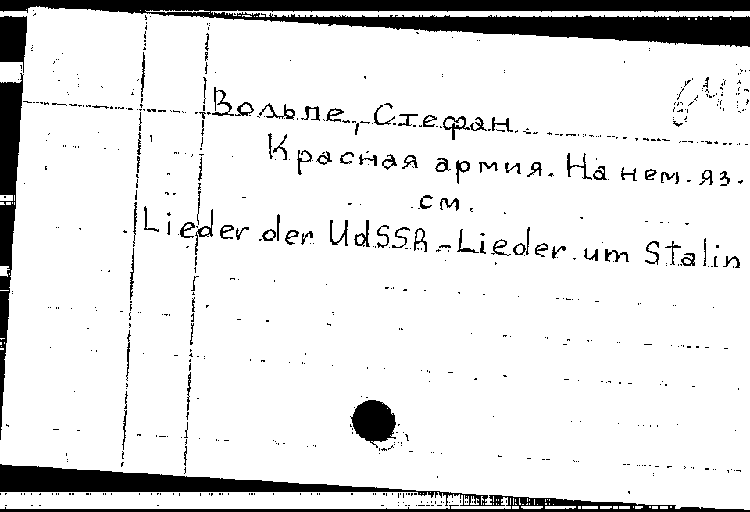 Вольпе, Стефан
Красная армия. На нем. яз.
см.
Lieder der UdSSR - Lieder um Stalin